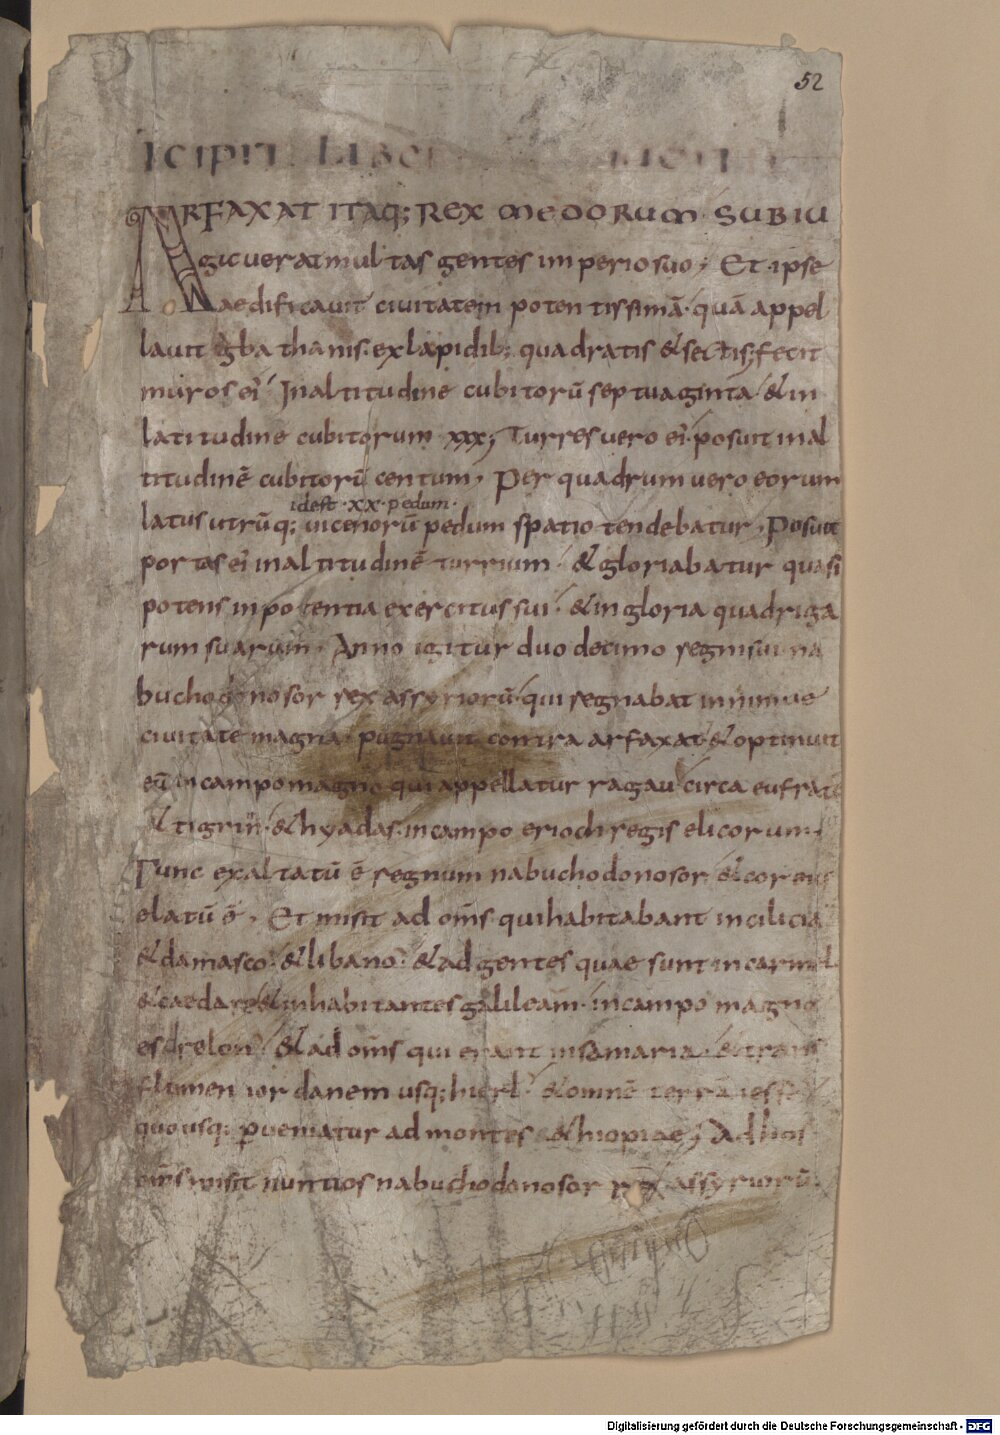 52
ICIPIT LIBER
ARFAXAT ITAQ; REX MEDORUM SUBIU
gicuerat multas gentes imperio suo; Et ipse
aedificauit ciuitatem potentissimā quā appel
lauit egbathanis. ex lapidib; quadratis & sectis; fecit
muros ei᾽ In altitudine cubitorū septuaginta & in
latitudine cubitorum xxx; Turres uero ei᾽ posuit in al
titudinē cubitorū centum; Per quadrum uero eorum
idest xx pedum
latus utrūq; uicenorū pedum spatio tendebatur; Posuit
portas ei᾽ in altitudinē turrium & gloriabatur quasi
potens in potentia exercitus sui & in gloria quadriga
rum suarum. Anno igitur duodecimo regni sui na
buchodonosor rex assyriorū qui regnabat in niniue
ciuitate magna pugnauit contra arfaxat & optinuit
eū in campo magno qui appellatur ragau circa eufraten
& tigrin & hyadas in campo erioch regis elicorum.
Tunc exaltatū ē regnum nabuchodonosor & cor eius
elatū ē. Et misit ad om̄s qui habitabant in cilicia
& damasco & libano & ad gentes quae sunt in carmelo
& caedar & inhabitantes galileam in campo magno
esdrelon & ad om̄s qui erant in samaria & trans
flumen iordanem usq; hierl̄ & omnē terrā iesse
quousq; ꝑueniatur ad montes &hiopiae; Ad hos
om̄s misit nuntios nabuchodonosor rex assyriorū
Digitalisierung gefördert durch die Deutsche Forschungsgemeinschaft - DFG